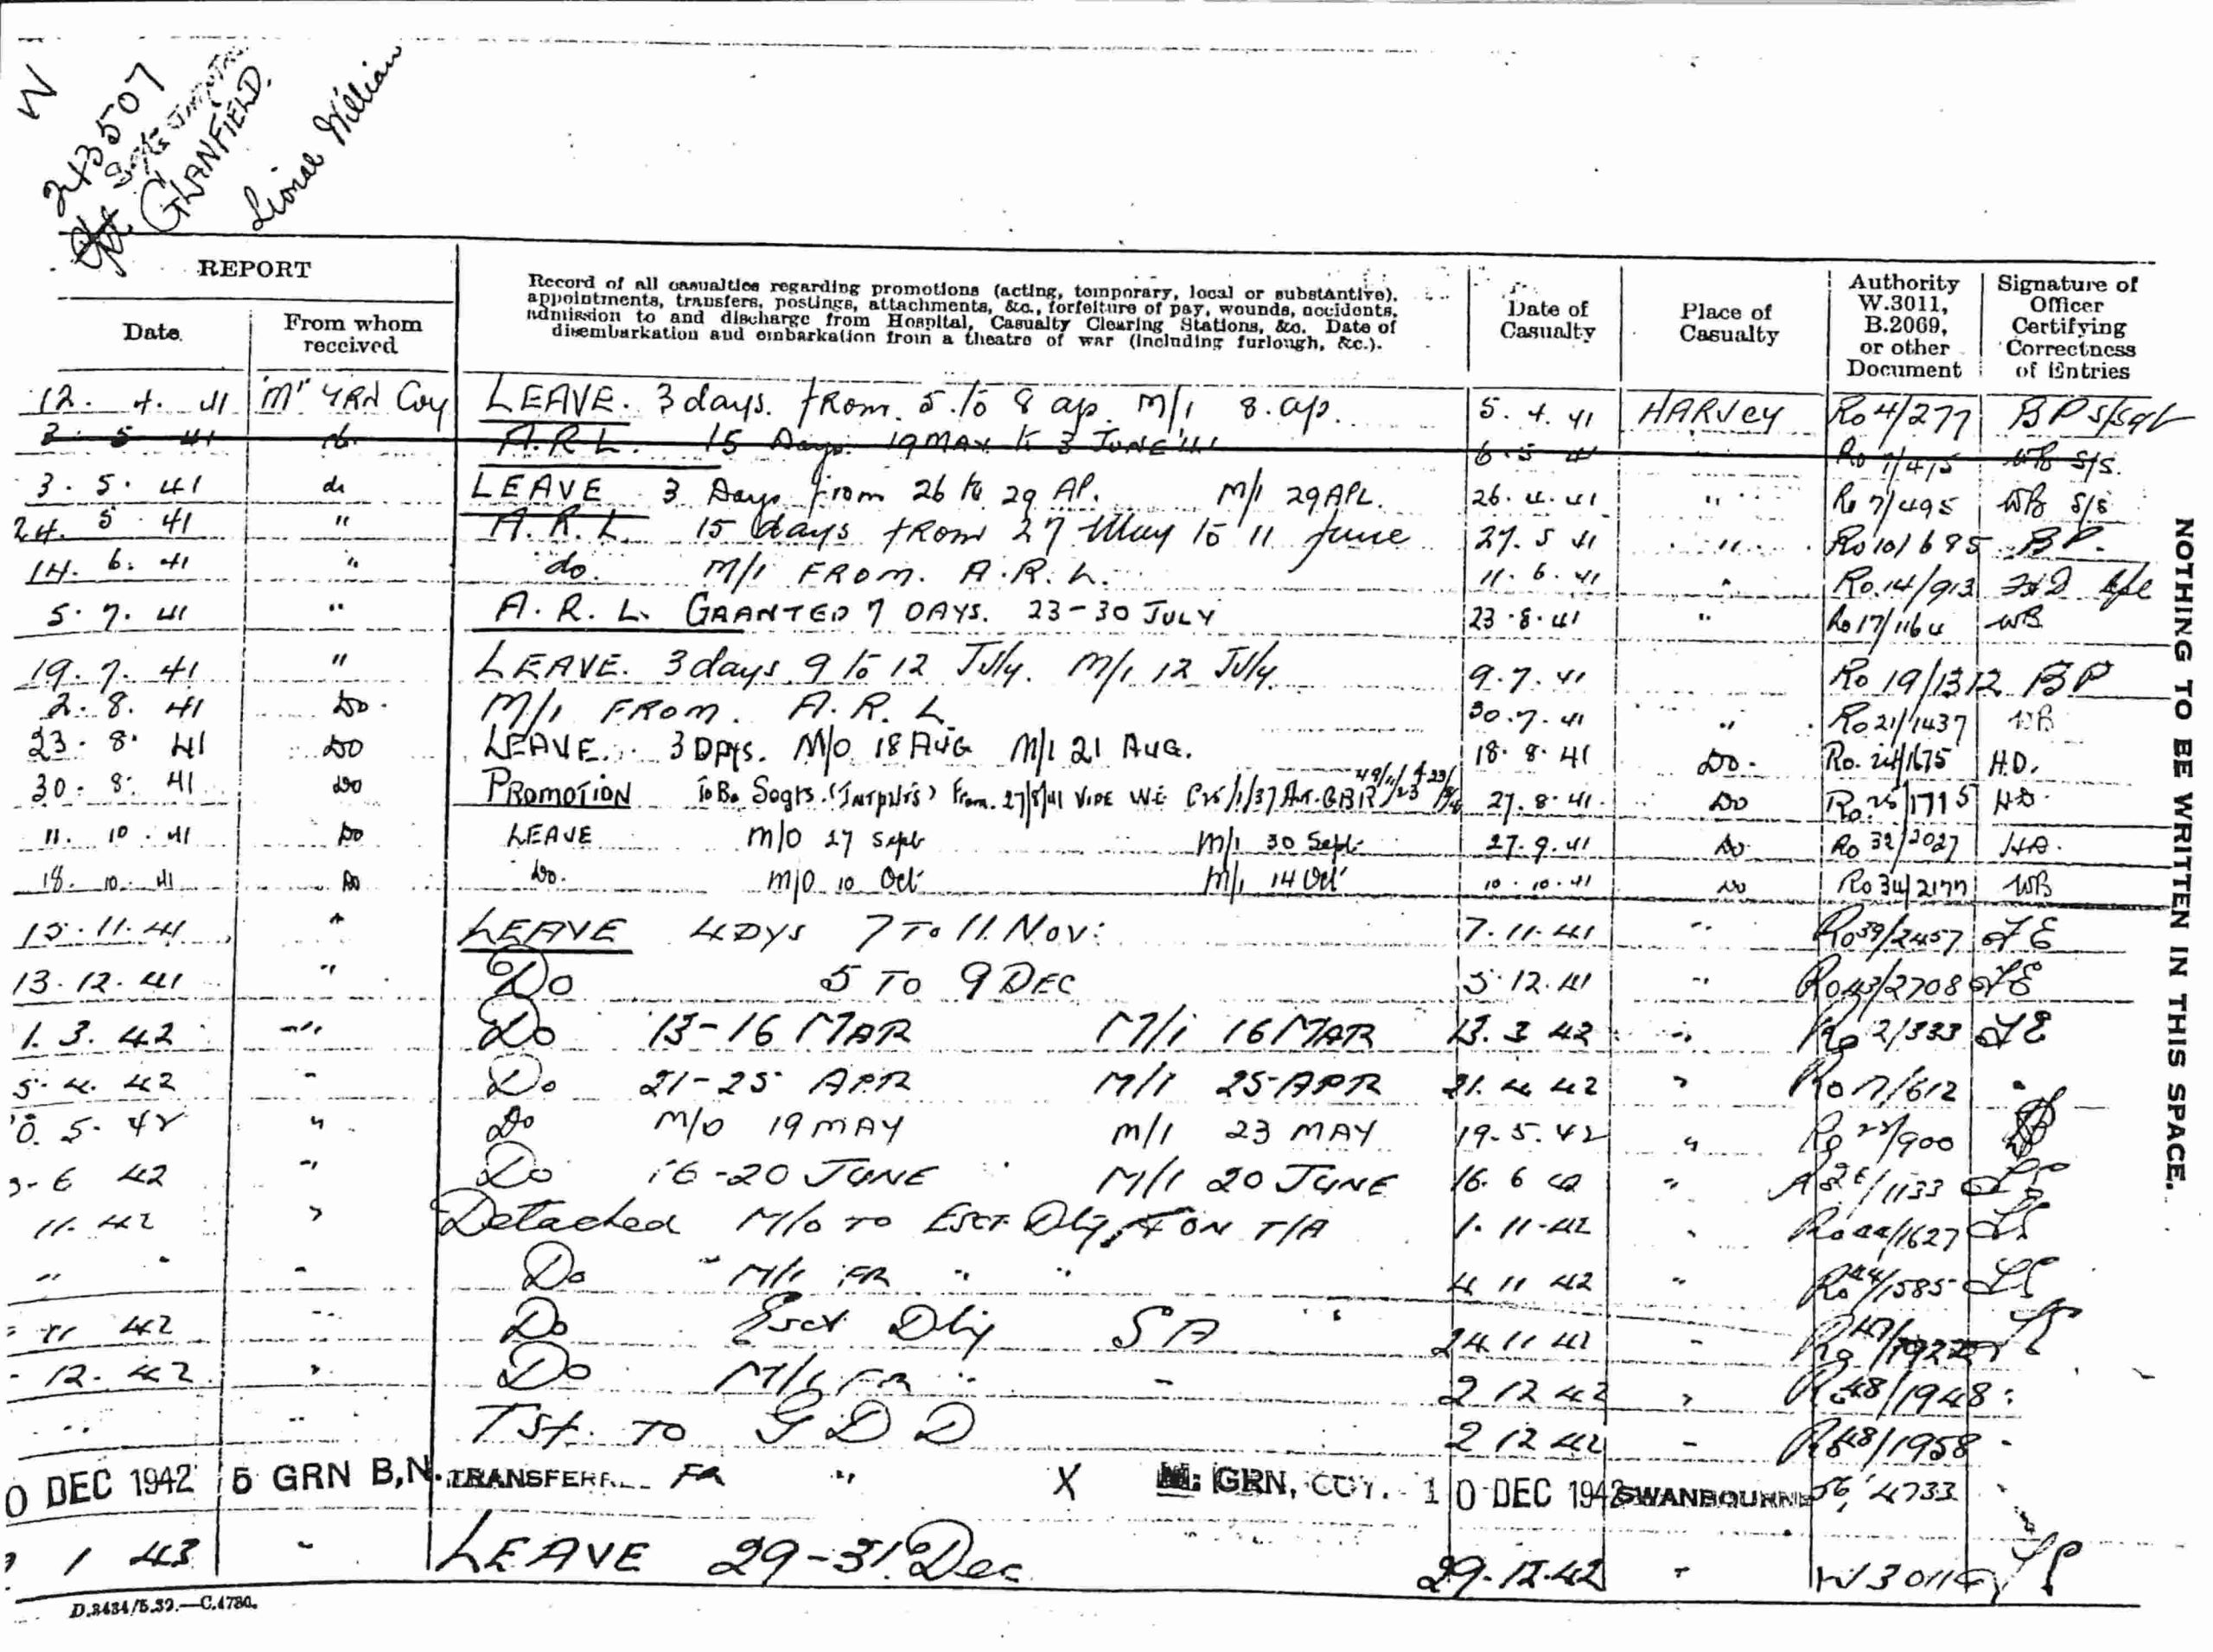 W
243507
GLANFIELD.
Lional William
REPORT
Date.
From whom received
Record of all casualties regarding promotions (acting, temporary, local or substantive),
appointments, transfers, postings, attachments, &c., forfeiture of pay, wounds, accidents,
admission to and discharge from Hospital, Casualty Clearing Stations, &c. Date of
disembarkation and embarkation from a theatre of war (including furlough, &c.).
Date of Casualty
Place of Casualty
Authority W.3011, B.2069, or other Document
Signature of Officer Certifying Correctness of Entries
12. 4. 41 "M" GRN Coy LEAVE. 3 days. from. 5. to 8 ap. M/I 8. ap. 5. 4. 41 HARVEY Ro 4/277 BP S/Sgt
3 5 41 do. A.R.L. 15 Days. 19 MAY to 3 JUNE 41 6 5 41 " Ro 7/475 WB S/S.
3. 5. 41 do LEAVE 3 Days from 26 to 29 AP. M/I 29 APL. 26. 4. 41 " Ro 7/495 WB S/S
24. 5. 41 " A.R.L. 15 days from 27 May to 11 June 27. 5 41 " Ro 10/685 BP.
14. 6. 41 " do. M/I FROM. A.R.L. 11. 6. 41 " Ro. 14/913
5. 7. 41 " A.R.L. GRANTED 7 DAYS. 23-30 JULY 23. 8. 41 " Ro 17/1164 WB
19. 7. 41 " LEAVE. 3 days 9 to 12 July. M/I 12 July. 9. 7. 41 Ro 19/1312 BP
2. 8. 41 Do. M/I FROM. A.R.L. 30. 7. 41 " Ro 21/1437 WB
23. 8. 41 Do LEAVE. 3 DAYS. M/O 18 AUG M/I 21 AUG. 18. 8. 41 Do. Ro. 24/1675 H.D.
30. 8. 41 Do PROMOTION To Be Sogts. (INTPNTS) From. 27/8/41 VIDE W.E. 27. 8. 41. Do Ro. 25/1715 H.D.
11. 10. 41 Do LEAVE M/O 27 Sept M/I 30 Sept. 27. 9. 41 Do Ro 32/2027 H.D.
18. 10. 41 Do Do. M/O 10 Oct M/I 14 Oct 10. 10. 41 Do Ro 34/2177 WB
15. 11. 41 " LEAVE 4 DYS 7 To 11. Nov: 7. 11. 41 " Ro 39/2457
13. 12. 41 " Do 5 TO 9 DEC 5. 12. 41 " Ro 43/2708
1. 3. 42 " Do 13-16 MAR M/I 16 MAR 13. 3 42 " Ro 2/333
5. 4. 42 " Do 21-25 APR M/I 25 APR 21. 4 42 " Ro 17/612 "
0. 5. 42 " Do M/O 19 MAY M/I 23 MAY 19. 5. 42 " Ro /900
6 42 " Do 16-20 JUNE M/I 20 JUNE 16. 6 42 " /1133
11. 42 " Detached M/O TO Esct Dty ON T/A 1. 11. 42 " Ro 44/1627
" " " Do " M/I FR " " 4 11 42 " Ro 44/1585
11 42 " Do Esct Dty SA " 24 11 42 " Ro 47/
12. 42 " Do M/I FR " " 2 12 42 " Ro 48/1948
" " Tsf. TO GDD 2 12 42 " Ro 48/1958 "
0 DEC 1942 5 GRN B,N. TRANSFERR FR " X GRN. COY. 10 DEC 1942 SWANBOURNE 4733
1 43 " LEAVE 29-31. Dec 29. 12. 42 " W3011
D.3434/5.39.—C.4780.
NOTHING TO BE WRITTEN IN THIS SPACE.